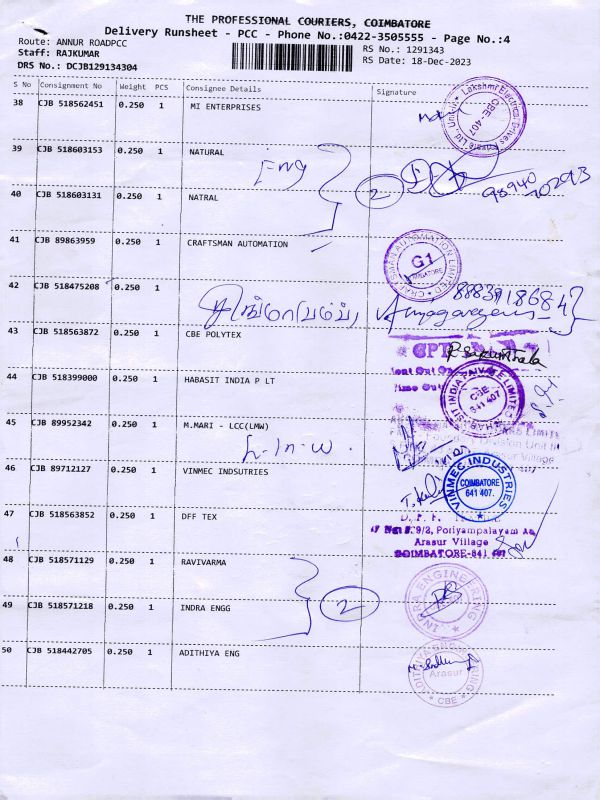 THE PROFESSIONAL COURIERS, COIMBATORE
Delivery Runsheet - PCC - Phone No.:0422-3505555 - Page No.:4
Route: ANNUR ROADPCC
RS No.: 1291343
Staff: RAJKUMAR
RS Date: 18-Dec-2023
DRS No.: DCJB129134304
S No Consignment No Weight PCS Consignee Details Signature
38 CJB 518562451 0.250 1 MI ENTERPRISES
Lakshmi Electrical Drives Private Ltd, Unit
CBE-407
39 CJB 518603153 0.250 1 NATURAL
Eng
2
98940 70293
40 CJB 518603131 0.250 1 NATRAL
41 CJB 89863959 0.250 1 CRAFTSMAN AUTOMATION
CRAFTSMAN AUTOMATION LIMITED
G1
COIMBATORE
42 CJB 518475208 0.250 1
43 CJB 518563872 0.250 1 CBE POLYTEX
44 CJB 518399000 0.250 1 HABASIT INDIA P LT
HABASIT INDIA PRIVATE LIMITED
CBE
641 407
45 CJB 89952342 0.250 1 M.MARI - LCC(LMW)
46 CJB 89712127 0.250 1 VINMEC INDSUTRIES
VINMEC INDUSTRIES
COIMBATORE
641 407.
47 CJB 518563852 0.250 1 DFF TEX
9/2, Poriyampalayam
Arasur Village
COIMBATORE-641 407
48 CJB 518571129 0.250 1 RAVIVARMA
2
49 CJB 518571218 0.250 1 INDRA ENGG
INDRA ENGINEERING
50 CJB 518442705 0.250 1 ADITHIYA ENG
Arasur
CBE